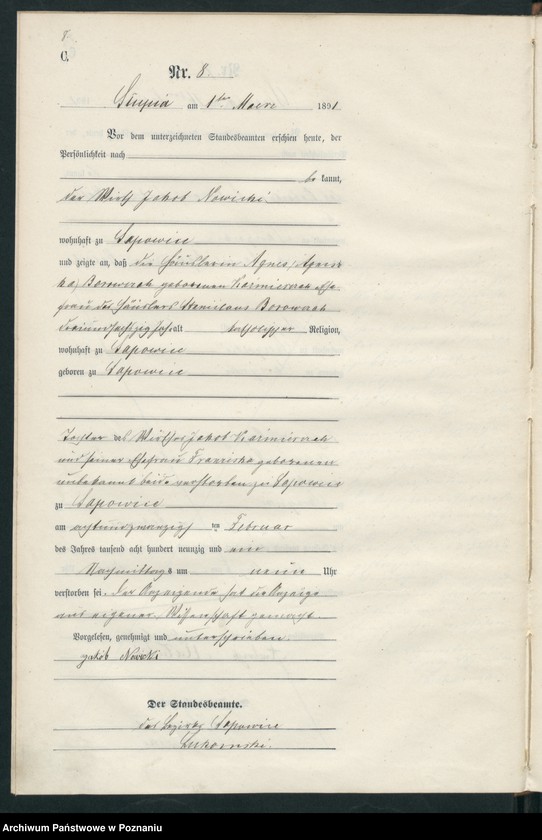 8.
C.
Nr. 8.
Słupia am 1ten Maerz 1891
Vor dem unterzeichneten Standesbeamten erschien heute, der
Persönlichkeit nach
be kannt,
der Wirth Jakob Nowicki
wohnhaft zu Sapowice
und zeigte an, daß die Häuslerin Agnes, Agnes
ka, Borowczak geborenen Kaźmierczak Ehe
frau des Häuslers Stanislaus Borowczak
dreiundsechzig Jahr alt katholischer Religion,
wohnhaft zu Sapowice
geboren zu Sapowice
Tochter des Wirthes Jakob Kaźmierczak
und seiner Ehefrau Franziska geborenen
unbekannt beide verstorben zu Sapowice
zu Sapowice
am achtundzwanzigsten Februar
des Jahres tausend acht hundert neunzig und eins
Nachmittags um neun Uhr
verstorben sei. Der Anzeigende hat die Anzeige
aus eigener Wissenschaft gemacht.
Vorgelesen, genehmigt und unterschrieben.
Jakób Nowicki
Der Standesbeamte.
des Bezirks Sapowice
Łukomski.
Archiwum Państwowe w Poznaniu